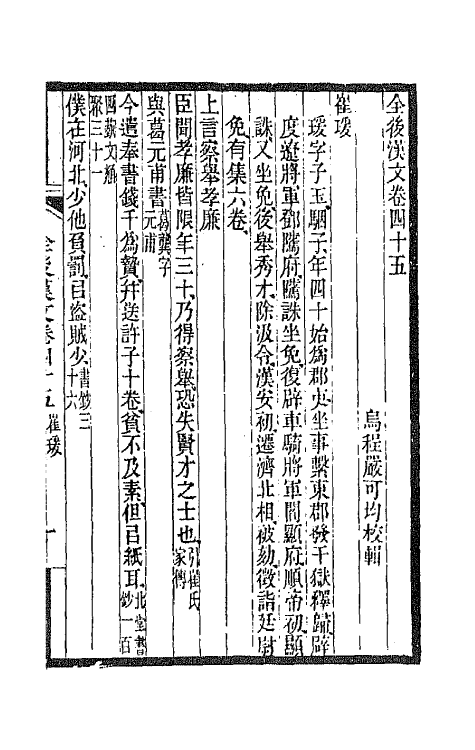 全後漢文卷四十五
烏程嚴可均校輯
崔瑗
瑗字子玉駰子年四十始爲郡吏坐事繫東郡發干獄釋歸辟
度遼將軍鄧隲府隲誅坐免復辟車騎將軍閻顯府順帝初顯
誅又坐免後舉秀才除汲令漢安初遷濟北相被劾徵詣廷尉
免有集六卷
上言察舉孝廉
臣聞孝廉皆限年三十乃得察舉恐失賢才之士也引崔氏家傳
與葛元甫書葛龔字元甫
今遣奉書錢千爲贄幷送許子十卷貧不及素但㠯紙耳北堂書鈔一百
四藝文類聚三十一
僕在河北少他負罰㠯盜賊少書鈔三十六
全後漢文卷四十五 崔瑗 一